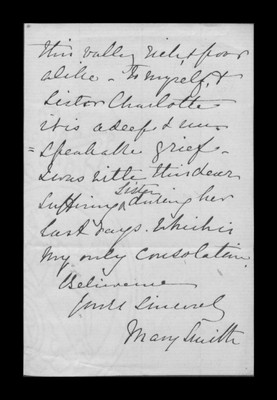 this valley rich & poor
alike - to myself, &
Sister Charlotte
it is a deep & un
= speakable grief -
I was with this dear
suffering Sister during her
last days. Which is
my only consolation
Believe me
Yours Sincerely
Mary Smith